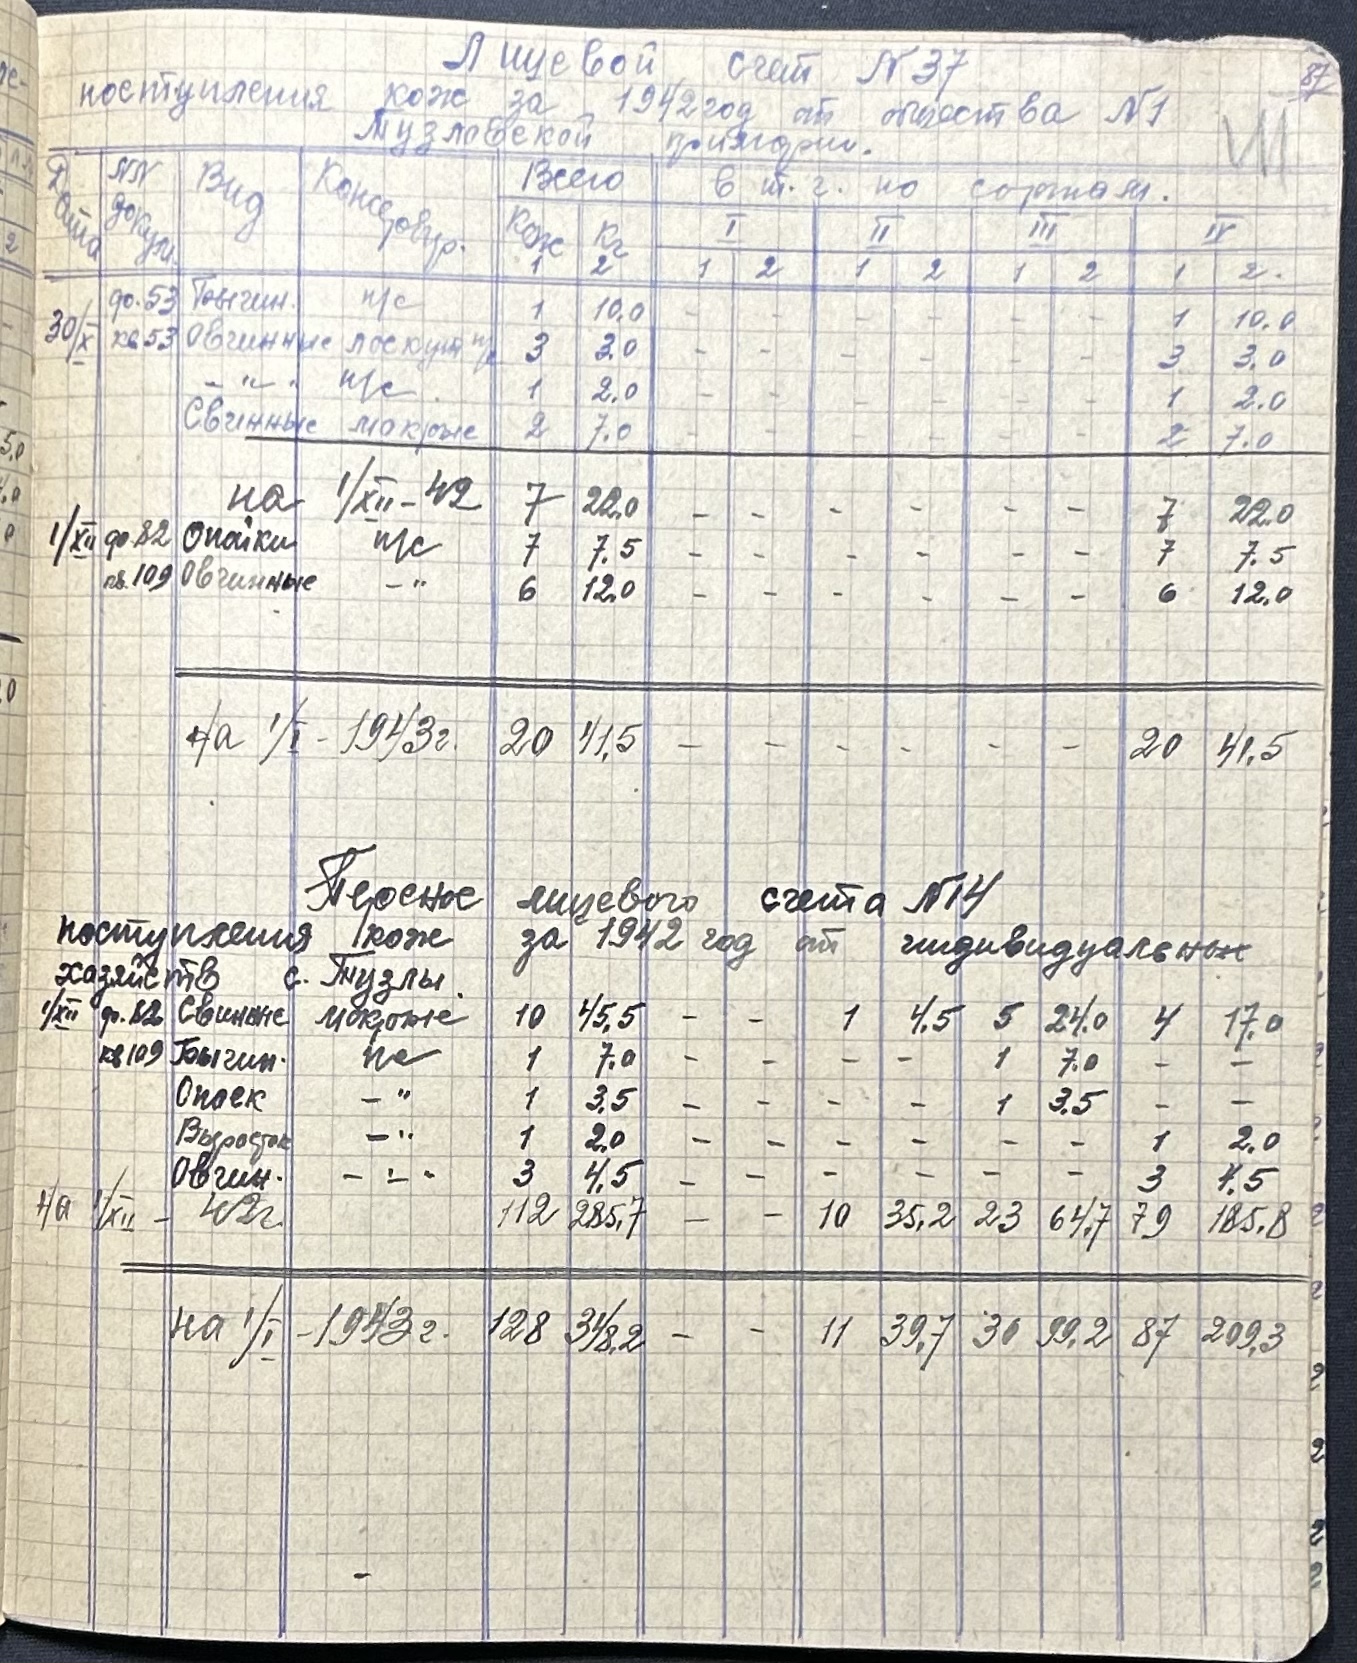 87
Лицевой счет №37
поступления кож за 1942 год от общества №1
Тузловской примарии.
Дата №№ докум. Вид Консервир. Всего в т.г. по сортам.
Кож Кг I II III IV
1 2 1 2 1 2 1 2 1 2.
30/X ф.53 Бычин. п/с 1 10.0 - - - - - - 1 10.0
кв53 Овчинные лоскут п/с 3 3.0 - - - - - - 3 3.0
- " - п/с 1 2.0 - - - - - - 1 2.0
Свинные мокрые 2 7.0 - - - - - - 2 7.0
на 1/XII-42 7 22.0 - - - - - - 7 22.0
1/XII ф.82 Опойки п/с 7 7.5 - - - - - - 7 7.5
кв.109 Овчинные - " 6 12.0 - - - - - - 6 12.0
на 1/I - 1943г. 20 41,5 - - - - - - 20 41,5
Перенос лицевого счета №14
поступления кож за 1942 год от индивидуальных
хозяйств с. Тузлы.
1/XII ф.82 Свиные мокрые 10 45,5 - - 1 4.5 5 24.0 4 17.0
кв109 Бычин. пс 1 7.0 - - - - 1 7.0 - -
Опоек - " 1 3.5 - - - - 1 3.5 - -
Выросток - " 1 2.0 - - - - - - 1 2.0
Овчин. - " - 3 4,5 - - - - - - 3 4.5
на 1/XII - 42г. 112 285,7 - - 10 35,2 23 64,7 79 185.8
на 1/I - 1943г. 128 348,2 - - 11 39,7 30 99,2 87 209,3